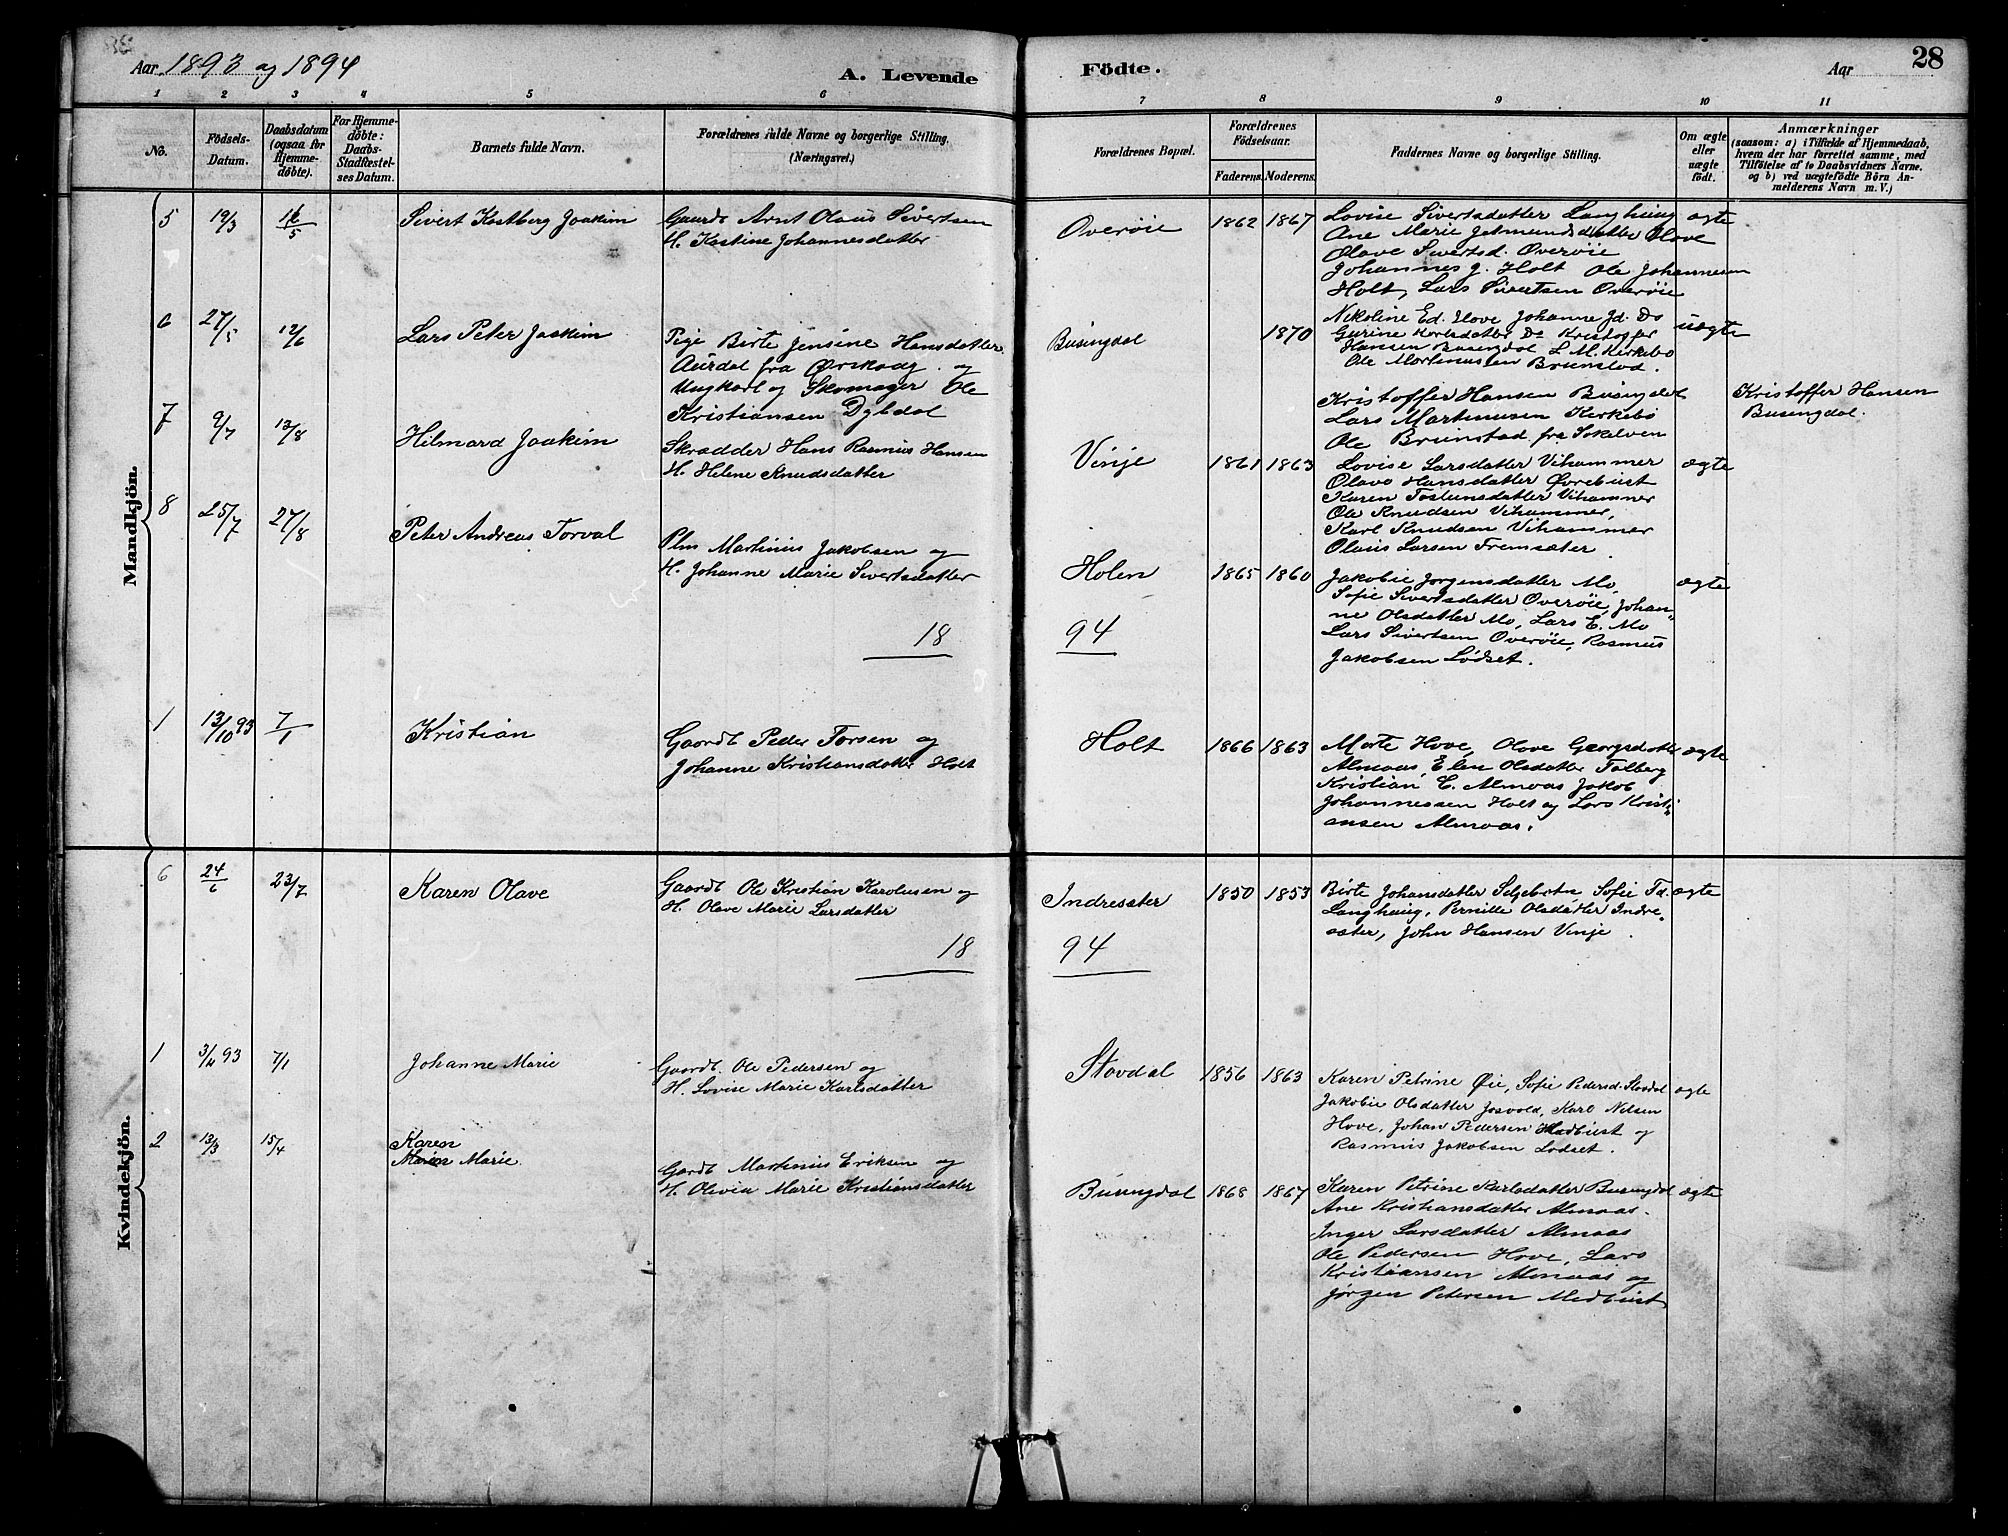 Aar 1893 og 1894
A. Levende
Födte.
Aar
28
1 2 3 4 5 6 7 8 9 10 11
No.
Födsels-Datum.
Daabsdatum (ogsaa for Hjemme-döbte).
For Hjemme-döbte: Daabs-Stadfæstel-ses Datum.
Barnets fulde Navn.
Forældrenes fulde Navne og borgerlige Stilling.
(Næringsvei.)
Forældrenes Bopæl.
Forældrenes Födselsaar.
Faderens. Moderens.
Faddernes Navne og borgerlige Stilling.
Om ægte eller uægte födt.
Anmærkninger
(saasom: a) i Tilfælde af Hjemmedaab,
hvem der har forrettet samme, med
Tilföielse af to Daabsvidners Navne.
og b) ved uægtefödte Börn An-
melderens Navn m. V.)
Mandkjön.
5 19/3 /5 Sivert Kostberg Joakim
Gaardb Arnt Olaus Sivertsen
H. Kastine Johannesdatter
Overøie 1862 1867
Lovise Sivertsdatter Langhaug ægte
Ane Marie Jetmundsdatter Hove
Olave Sivertsd. Overøie
Johannes J. Holt Ole Johannesen
Holt, Lars Sivertsen Overøie
6 27/5 12/6 Lars Peter Joakim
Pige Birte Jensine Hansdatter
Aurdal fra Ørskog og
Ungkarl og Skomager Ole
Kristiansen Dybdal
Busengdal 1870
Nikoline Ed. Hove Johanne Jd. Do uægte
Gurine Karlsdatter Do Kristoffer
Hansen Busengdal L. M. Kirkebø
Ole Martinussen Brunstad.
Kristoffer Hansen Busengdal
Lars Martinusen Kirkebø
Ole Brunstad fra Søkelven
Kristoffer Hansen
Busengdal.
7 9/7 13/8 Hilmard Joakim
Skrædder Hans Rasmus Hansen
H. Helene Knudsdatter
Vinje 1861 1863
Lovise Larsdatter Vihammer ægte
Olave Hansdatter Ørebust
Karen Tostensdatter Vihammer
Ole Knudsen Vihammer,
Karl Knudsen Vihammer
Olaus Larsen Fremsæter.
8 25/7 27/8 Peter Andreas Torval
Plm Martinus Jakobsen og
H. Johanne Marie Sivertsdatter
Holen 1865 1860
Jakobie Jørgensdatter Mo, ægte
Sofie Sivertsdatter Overøie, Johan-
ne Olsdatter Mo, Lars E. Mo
Lars Sivertsen Overøie, Rasmus
Jakobsen Lødset.
18 94
1 13/10 93 7/1 Kristian
Gaardb Peder Torsen og
Johanne Kristiansdatt. Holt
Holt 1866 1863
Marte Hove, Olave Georgsdatter ægte
Almaas, Elen Olsdatter Talberg
Kristian C. Almaas Jakob
Johannessen Holt og Lars Kristi-
ansen Almaas.
Kvindekjön.
6 24/6 23/7 Karen Olave
Gaardb Ole Kristian Karolusen og
H. Olave Marie Larsdatter
Indresæter 1850 1853
Birte Johansdatter Seljebotn, Sofie Td. ægte
Langhaug, Pernille Olsdatter Indre-
sæter, John Hansen Vinje.
18 94
1 93 7/1 Johanne Marie
Gaardb. Ole Pedersen og
H. Lovise Marie Karlsdatter
Stavdal 1856 1863
Karen Petrine Øie, Sofie Pedersd. Stavdal ægte
Jakobie Olsdatter Josvold, Karl Nilsen
Hove, Johan Pedersen Medbust og
Rasmus Jakobsen Lødset.
2 13/3 15/4 Karen
Marie
Gardb Martinus Eriksen og
H. Olivia Marie Kristiansdatter
Busengdal 1868 1867
Karen Petrine Karlsdatter Busengdal ægte
Ane Kristiansdatter Almaas.
Inger Larsdatter Almaas
Ole Pedersen Hove, Lars
Kristiansen Almaas og
Jørgen Petersen Medbust